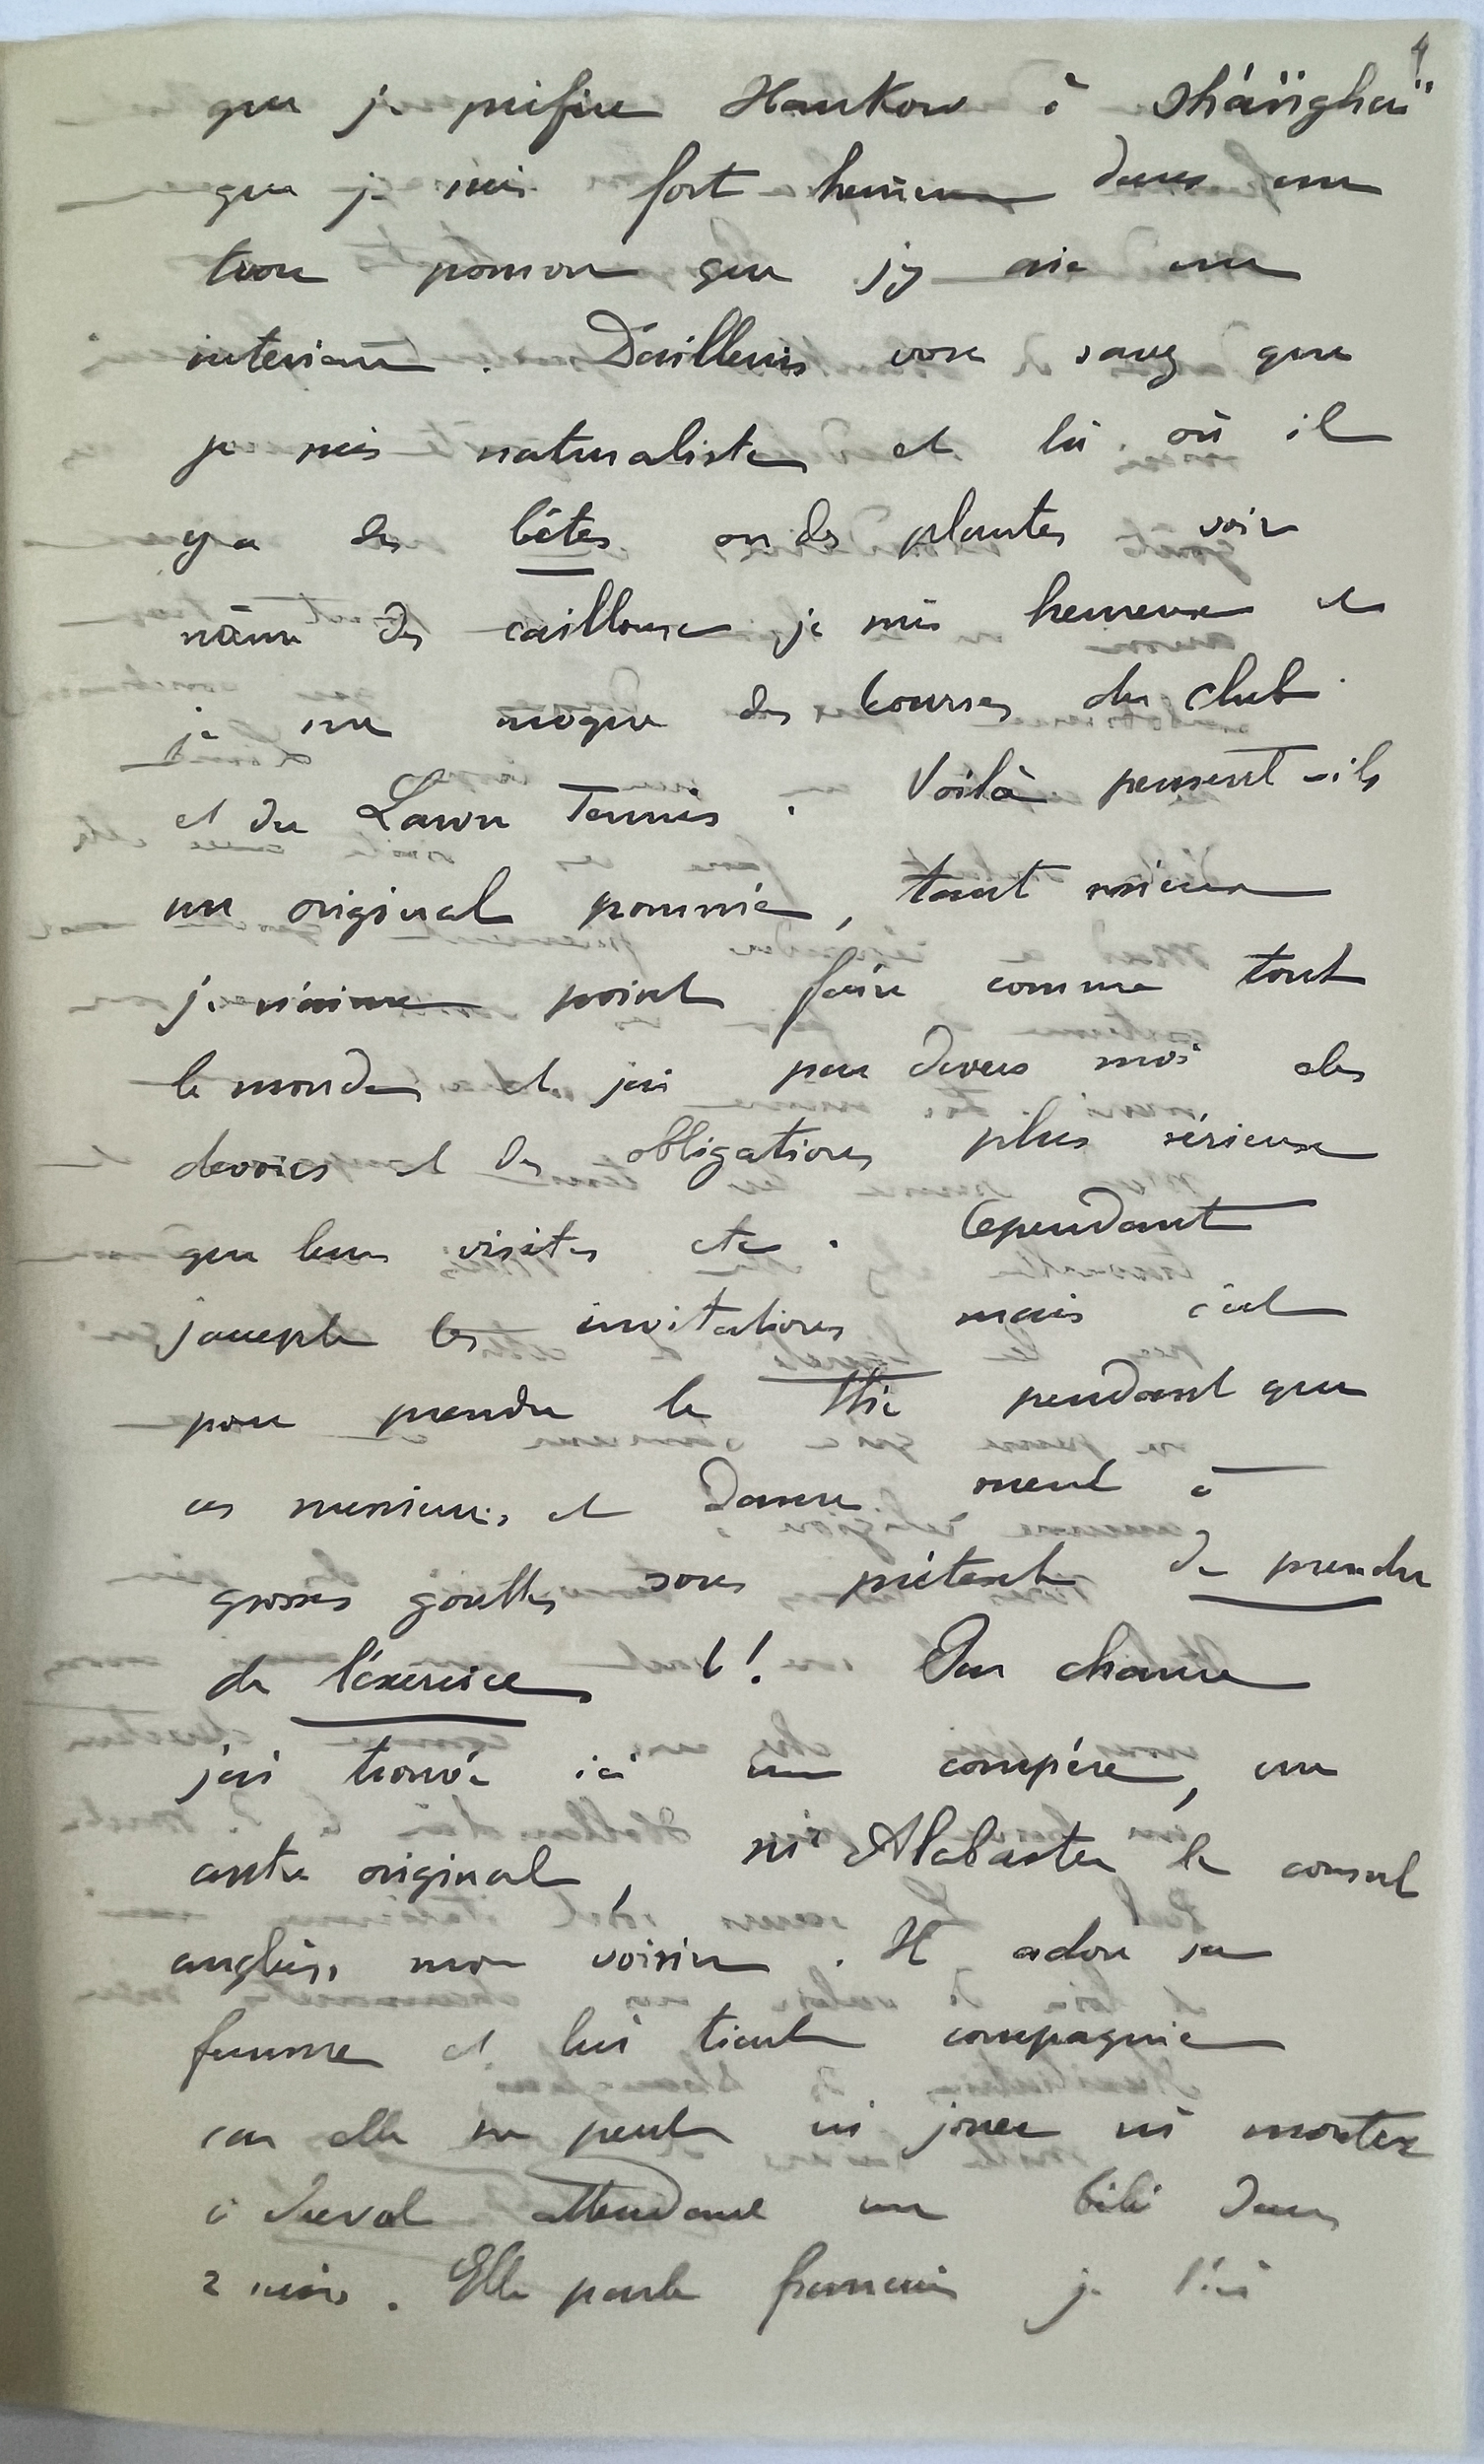 4
que je préfère Hankow à Shánghaï
que je suis fort heureux dans un
trou pourvu que j'y aie un
interieur. D'ailleurs vous savez que
je suis naturaliste et là où il
y a des bêtes ou des plantes voir
même des cailloux je suis heureux et
je me moque des courses du club
et du Lawn Tennis. Voilà pensent-ils
un original pommé, tant mieux
je n'aime point faire comme tout
le monde et j'ai par devers moi des
devoirs et des obligations plus sérieuse
que leurs visites etc. Cependant
j'accepte les invitations mais c'est
pour prendre le thé pendant que
ces messieurs et dames suent à
grosses gouttes sous prétexte de prendre
de l'exercice !! Par chance
j'ai trouvé ici un compère, un
autre original, mr Alabaster le consul
anglais, mon voisin. Il adore sa
femme et lui tient compagnie
car elle ne peut ni jouer ni monter
à cheval attendant un bébé dans
2 mois. Elle parle français je l'ai